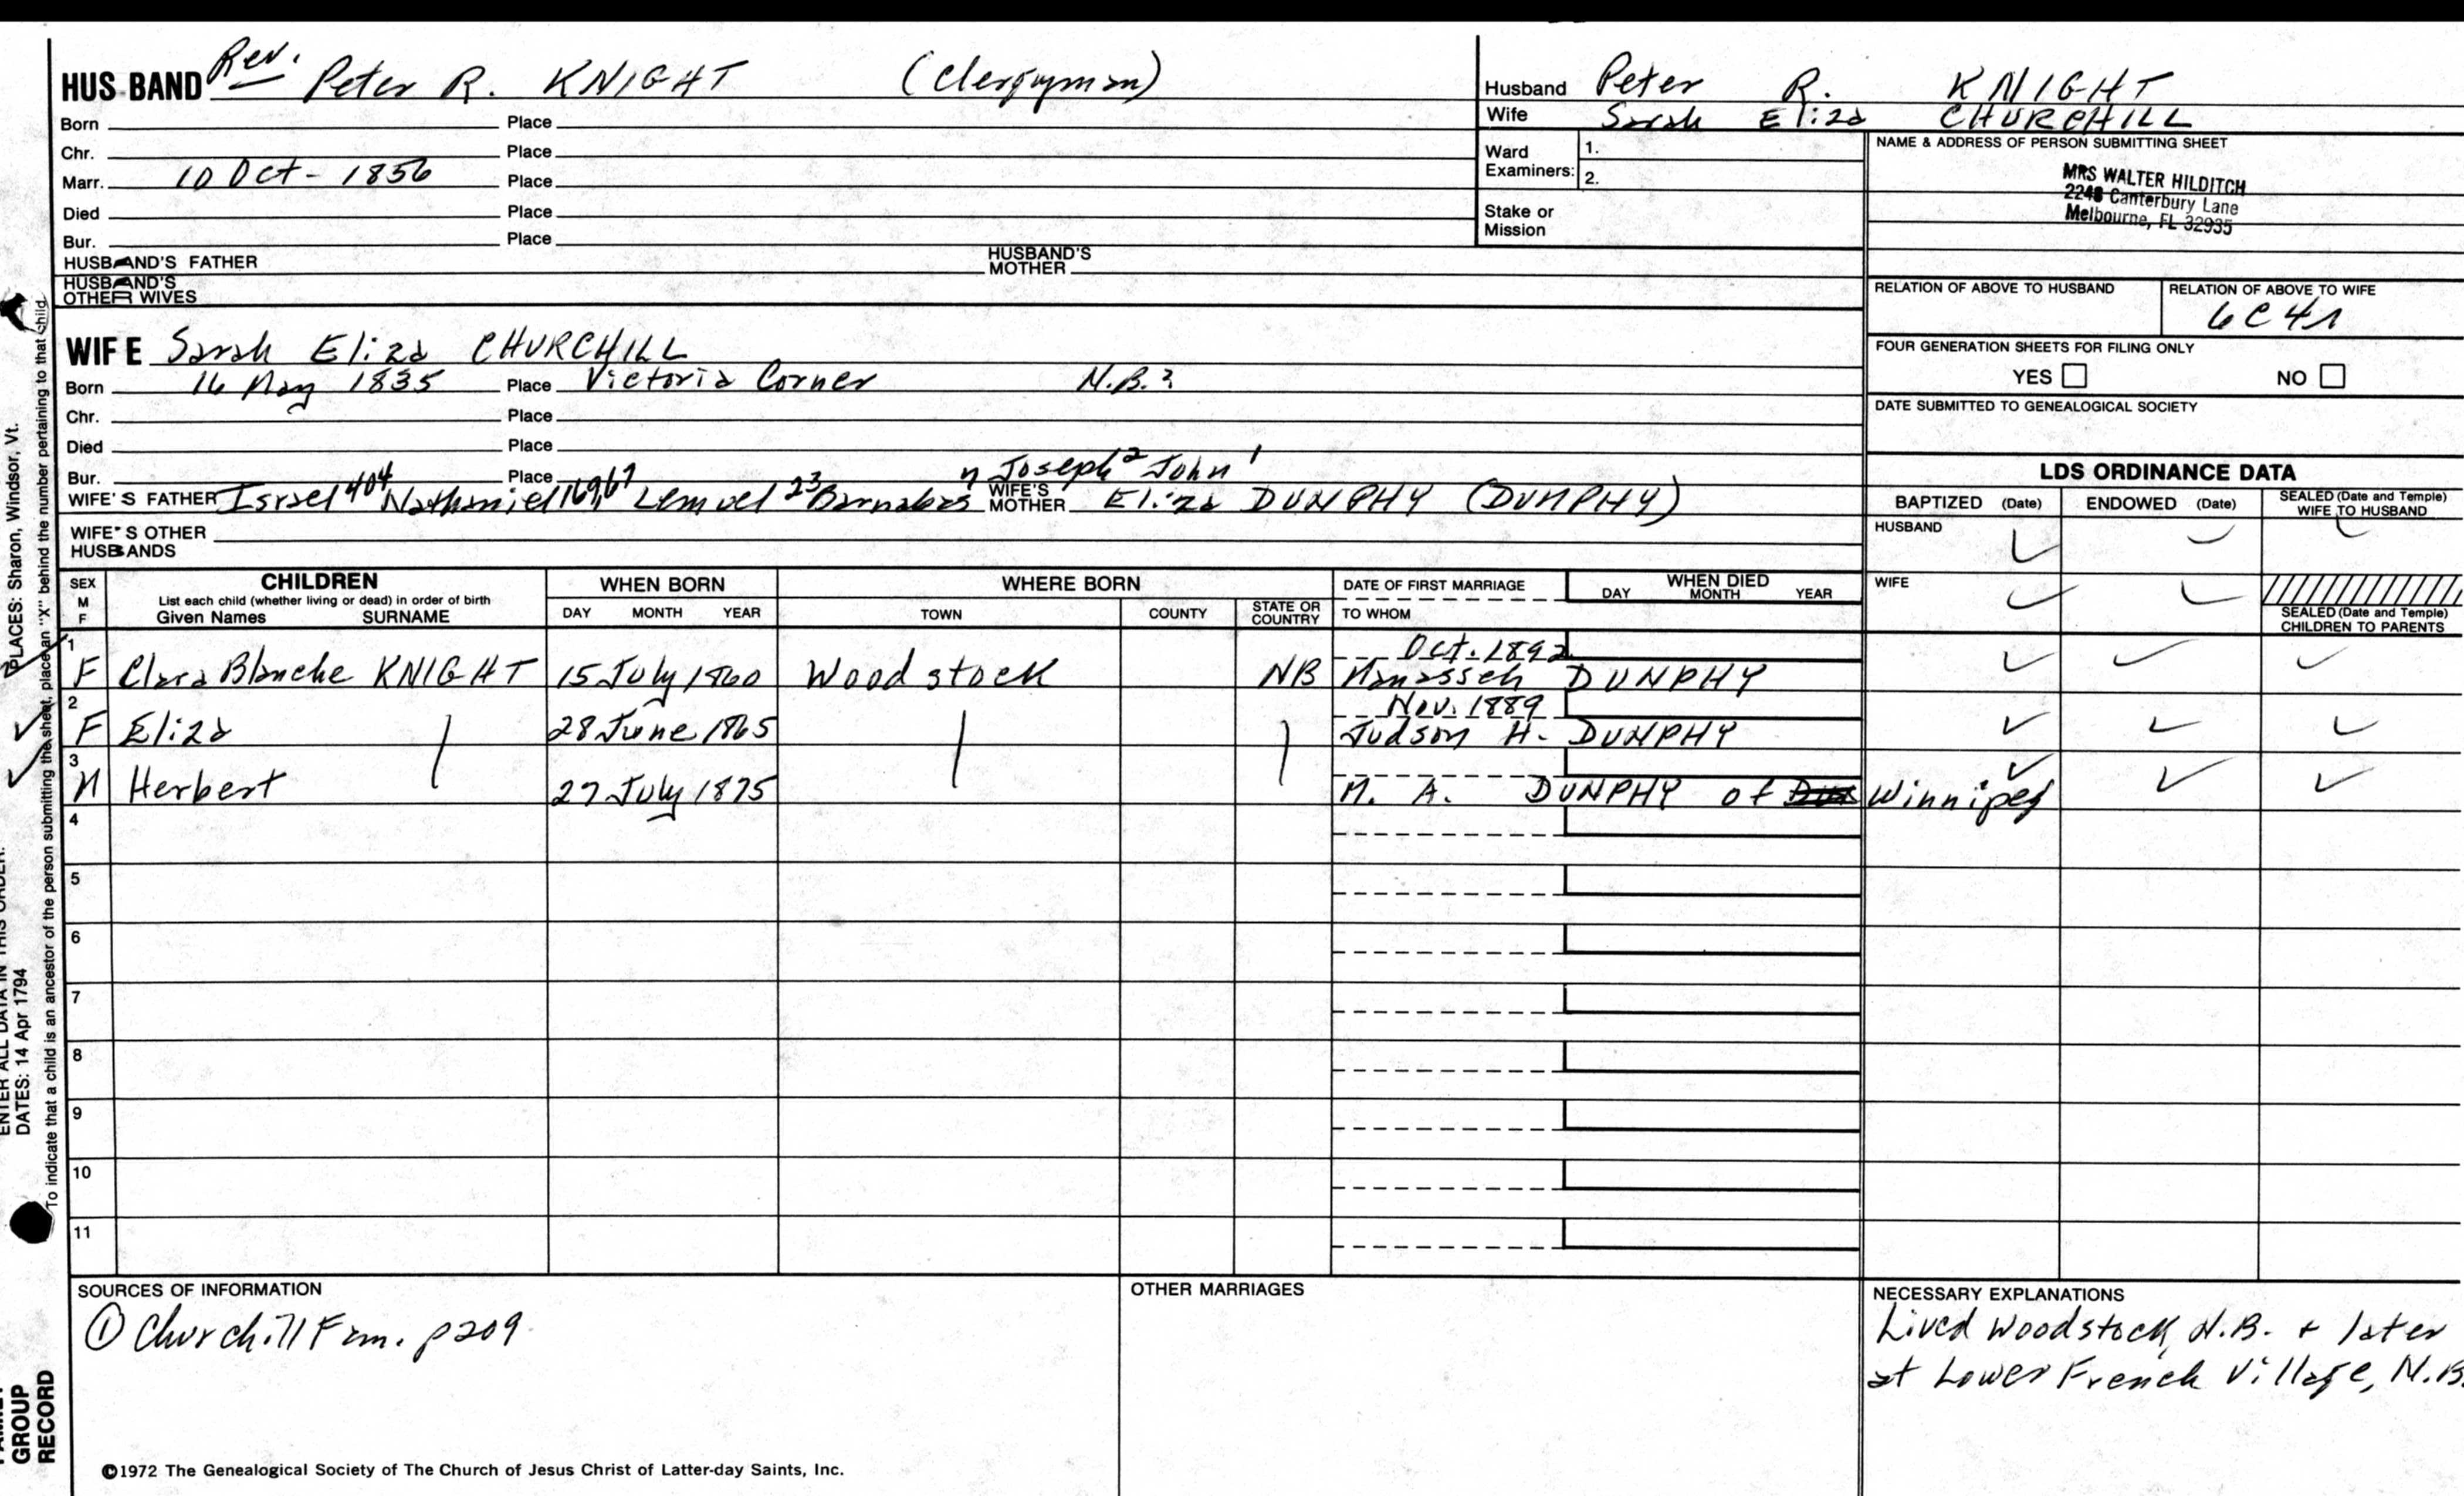 HUSBAND Rev. Peter R. KNIGHT (Clergyman)
Born Place
Chr. Place
Marr. 10 Oct - 1856 Place
Died Place
Bur. Place
HUSBAND'S FATHER HUSBAND'S MOTHER
HUSBAND'S OTHER WIVES
Husband Peter R. KNIGHT
Wife Sarah Eliza CHURCHILL
Ward Examiners: 1.
2.
Stake or Mission
NAME & ADDRESS OF PERSON SUBMITTING SHEET
MRS WALTER HILDITCH
2248 Canterbury Lane
Melbourne, FL 32935
RELATION OF ABOVE TO HUSBAND RELATION OF ABOVE TO WIFE
6C41
FOUR GENERATION SHEETS FOR FILING ONLY
YES NO
DATE SUBMITTED TO GENEALOGICAL SOCIETY
WIFE Sarah Eliza CHURCHILL
Born 16 May 1835 Place Victoria Corner N.B.?
Chr. Place
Died Place
Bur. Place Joseph 2 John 1
WIFE'S FATHER Israel 404 Nathaniel Lemuel 23 Barnabas WIFE'S MOTHER Eliza DUNPHY (DUNPHY)
WIFE'S OTHER HUSBANDS
LDS ORDINANCE DATA
BAPTIZED (Date) ENDOWED (Date) SEALED (Date and Temple) WIFE TO HUSBAND
HUSBAND
WIFE
SEALED (Date and Temple) CHILDREN TO PARENTS
SEX M F
CHILDREN
List each child (whether living or dead) in order of birth
Given Names SURNAME
WHEN BORN
DAY MONTH YEAR
WHERE BORN
TOWN COUNTY STATE OR COUNTRY
DATE OF FIRST MARRIAGE
TO WHOM
WHEN DIED
DAY MONTH YEAR
1 Oct. 1892
F Clara Blanche KNIGHT 15 July 1860 Woodstock NB Manasseh DUNPHY
2 Nov. 1889
F Eliza 28 June 1865 Judson H. DUNPHY
3
M Herbert 27 July 1875 M. A. DUNPHY of Winnipeg
4
5
6
7
8
9
10
11
SOURCES OF INFORMATION
① Churchill Fam. p209
OTHER MARRIAGES
NECESSARY EXPLANATIONS
Lived Woodstock, N.B. + later
at Lower French Village, N.B.
©1972 The Genealogical Society of The Church of Jesus Christ of Latter-day Saints, Inc.
ENTER ALL DATA IN THIS ORDER:
PLACES: Sharon, Windsor, Vt.
DATES: 14 Apr 1794
To indicate that a child is an ancestor of the person submitting the sheet, place an "X" behind the number pertaining to that child.
FAMILY
GROUP
RECORD